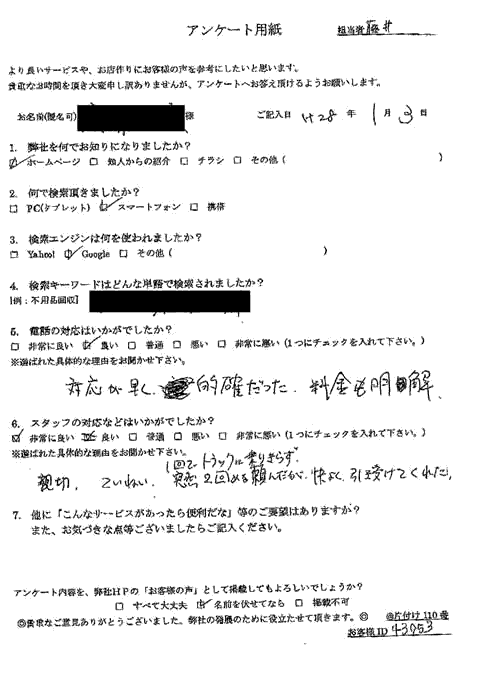 アンケート用紙
担当者 藤井
より良いサービスや、お店作りにお客様の声を参考にしたいと思います。
貴重なお時間を頂き大変申し訳ありませんが、アンケートへお答え頂けるようお願いします。
お名前(匿名可) 様 ご記入日 H28 年 1 月 3 日
1. 弊社を何でお知りになりましたか?
☑ ホームページ □ 知人からの紹介 □ チラシ □ その他 ( )
2. 何で検索頂きましたか?
□ PC(タブレット) ☑ スマートフォン □ 携帯
3. 検索エンジンは何を使われましたか?
□ Yahoo! ☑ Google □ その他 ( )
4. 検索キーワードはどんな単語で検索されましたか?
[例:不用品回収]
5. 電話の対応はいかがでしたか?
□ 非常に良い ☑ 良い □ 普通 □ 悪い □ 非常に悪い (1つにチェックを入れて下さい。)
※選ばれた具体的な理由をお聞かせ下さい。
対応が早く、的確だった。料金も明解、
6. スタッフの対応などはいかがでしたか?
☑ 非常に良い 良い □ 普通 □ 悪い □ 非常に悪い (1つにチェックを入れて下さい。)
※選ばれた具体的な理由をお聞かせ下さい。
1回でトラックに乗りきらず
親切、ていねい、2回め頼んだが、快よく引受けてくれた。
7. 他に「こんなサービスがあったら便利だな」等のご要望はありますか?
また、お気づきな点等ございましたらご記入ください。
アンケート内容を、弊社HPの「お客様の声」として掲載してもよろしいでしょうか?
□ すべて大丈夫 ☑ 名前を伏せてなら □ 掲載不可
◎貴重なご意見ありがとうございました。弊社の発展のために役立たせて頂きます。◎ @片付け110番
お客様ID 43953